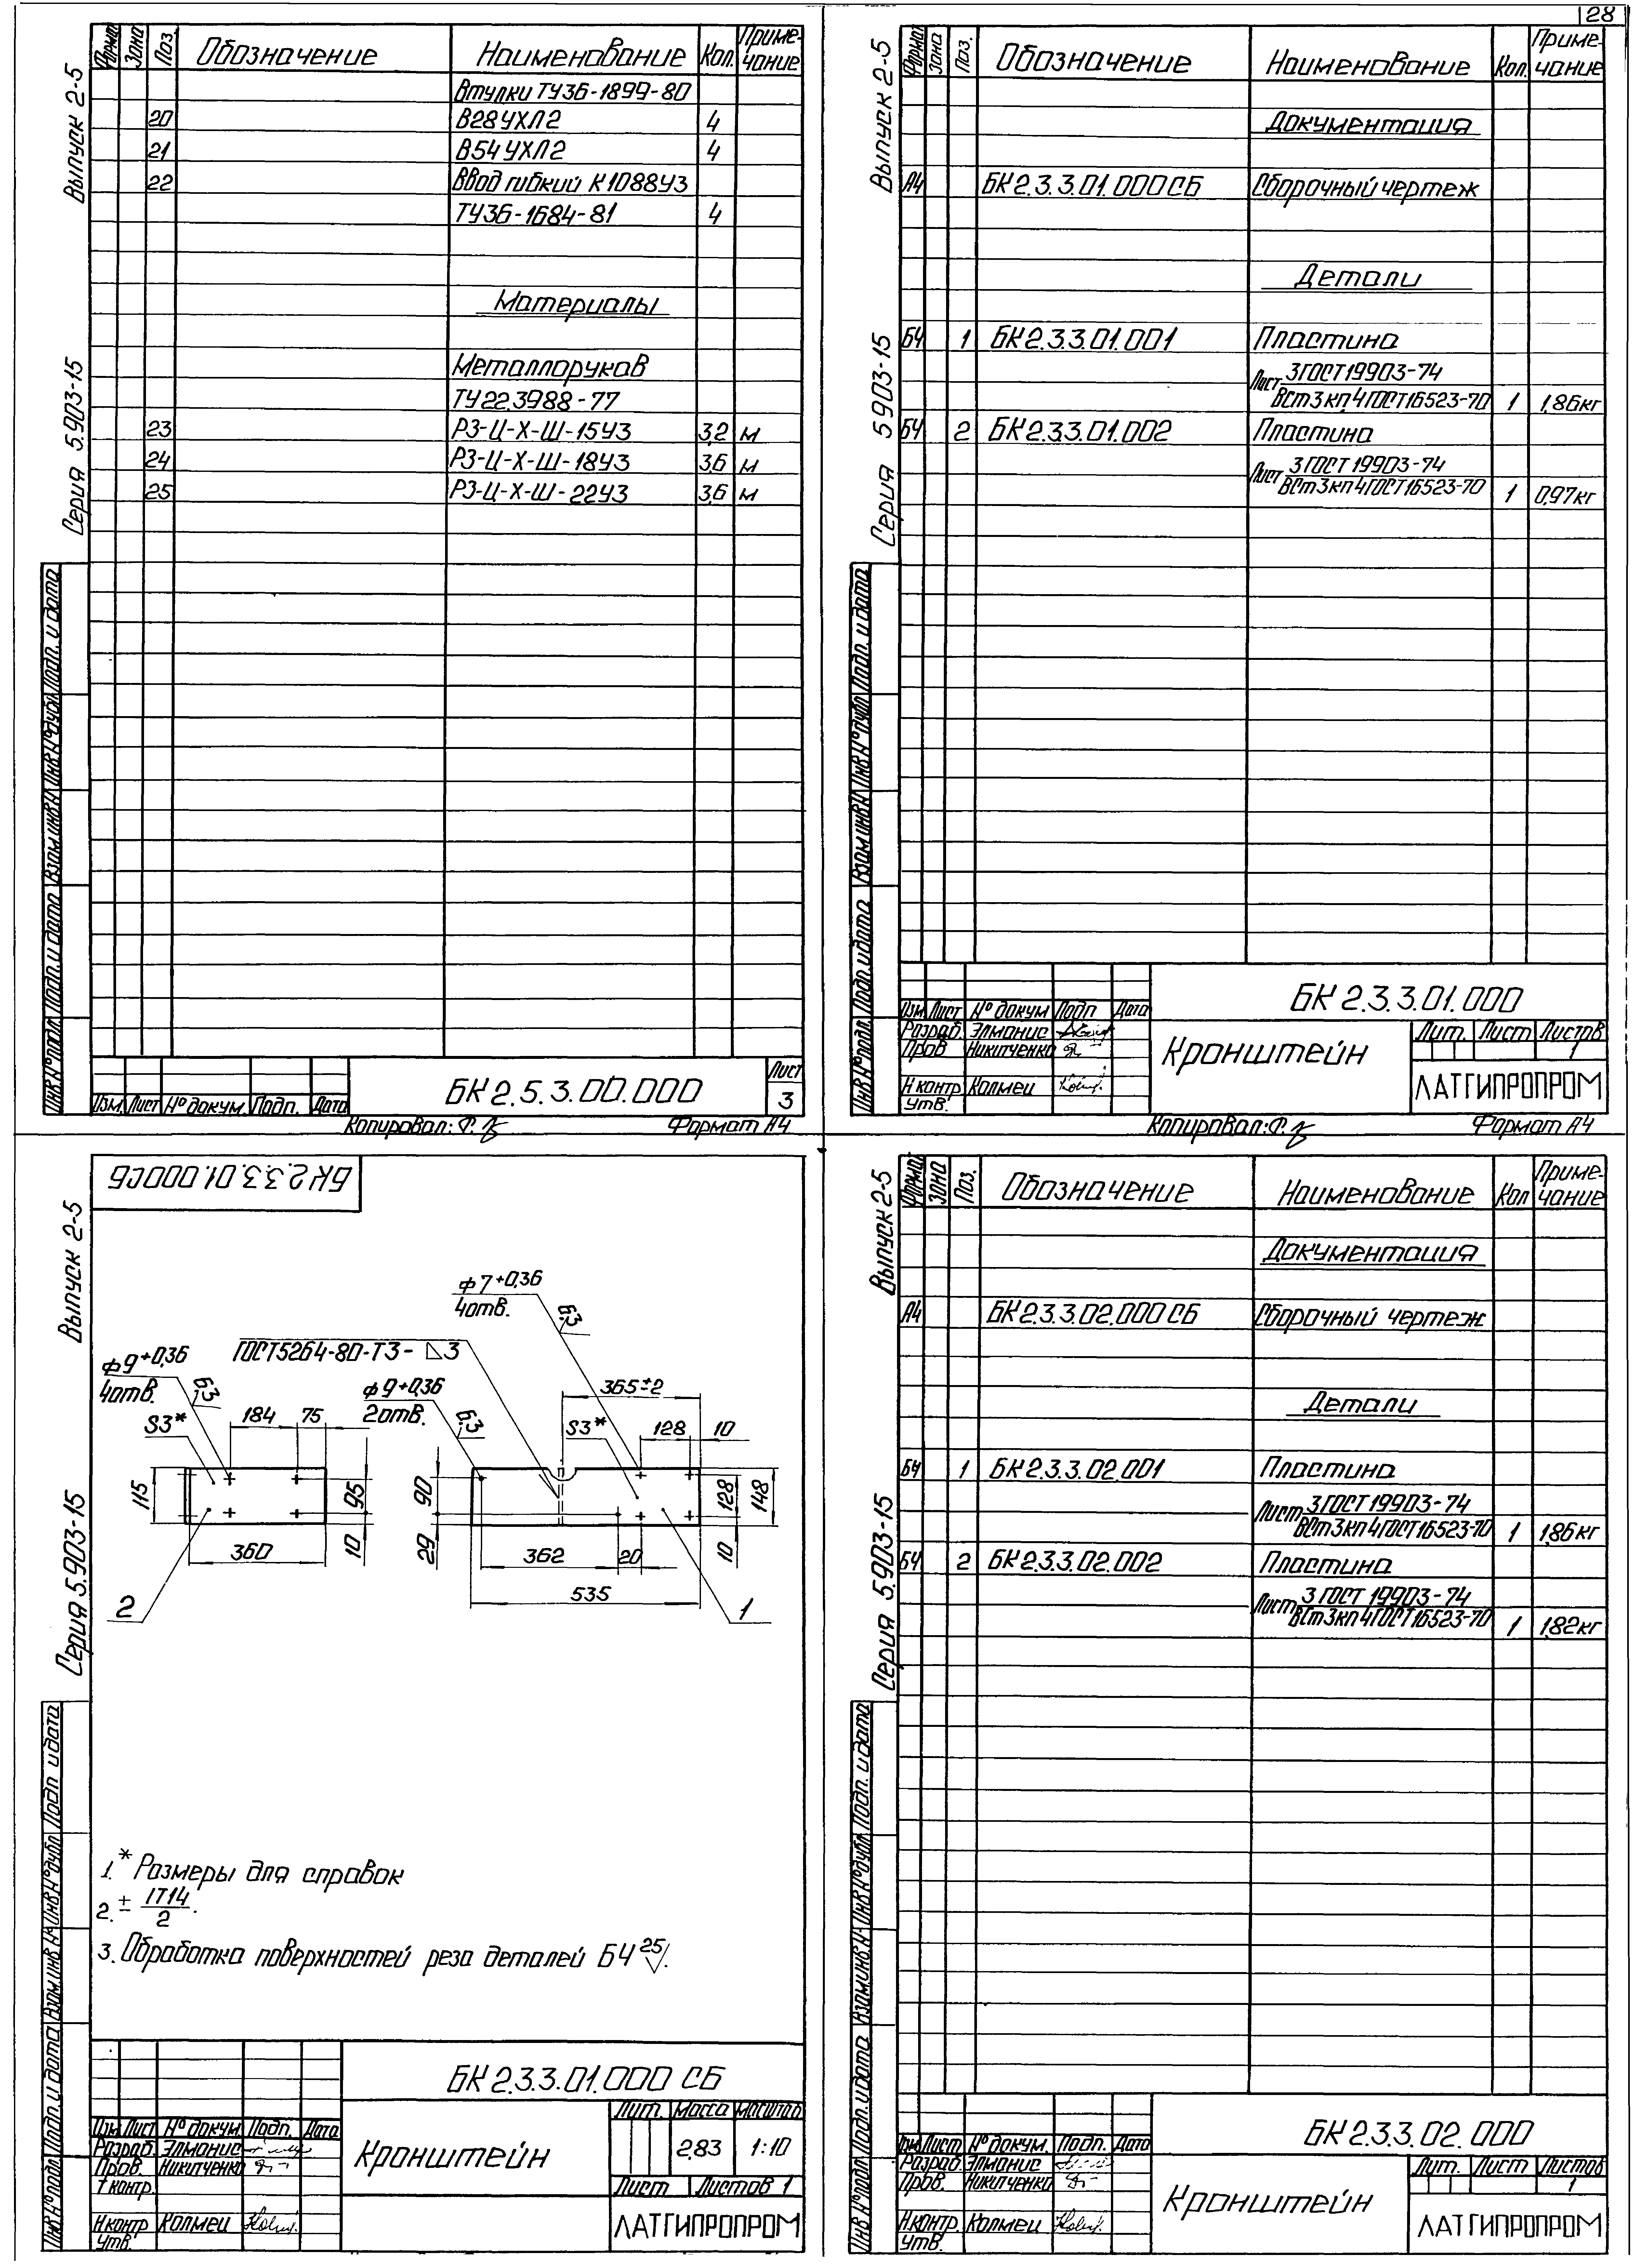 28
Выпуск 2-5
Серия 5.903-15
Формат Зона Поз. Обозначение Наименование Кол. Приме-чание
Втулки ТУ36-1899-80
20 В28УХЛ2 4
21 В54УХЛ2 4
22 Ввод гибкий К1088У3
ТУ36-1684-81 4
Материалы
Металлорукав
ТУ22.3988-77
23 РЗ-Ц-Х-Ш-15У3 3,2 м
24 РЗ-Ц-Х-Ш-18У3 3,6 м
25 РЗ-Ц-Х-Ш-22У3 3,6 м
Инв.№подл. Подп.и дата Взам.инв.№ Инв.№дубл. Подп. и дата
Изм. Лист №докум. Подп. Дата
БК 2.5.3.00.000
Лист
3
Копировал:
Формат А4
Выпуск 2-5
Серия 5.903-15
Формат Зона Поз. Обозначение Наименование Кол. Приме-чание
Документация
А4 БК 2.3.3.01.000СБ Сборочный чертеж
Детали
БЧ 1 БК 2.3.3.01.001 Пластина
Лист 3 ГОСТ19903-74
ВСт3кп4ГОСТ16523-70 1 1,86кг
БЧ 2 БК 2.3.3.01.002 Пластина
Лист 3 ГОСТ 19903-74
ВСт3кп4ГОСТ16523-70 1 0,97кг
Инв.№подл. Подп.и дата Взам.инв.№ Инв.№дубл. Подп. и дата
БК 2.3.3.01.000
Изм Лист №докум Подп Дата
Разраб. Элманис
Пров Никитченко
Н контр Колмец
Утв.
Кронштейн
Лит. Лист Листов
1
ЛАТГИПРОПРОМ
Копировал:
Формат А4
БК 2.3.3.01.000СБ
Выпуск 2-5
Серия 5.903-15
ф7+0,36
4отв.
6,3
ГОСТ5264-80-Т3-◺3
ф9+0,36
4отв.
6,3
ф9+0,36
2отв.
6,3
365±2
S3*
184 75
S3*
128 10
115
95
10
360
90
29
362
20
535
128
148
10
2
1
1.* Размеры для справок
2. ± IT14/2.
3. Обработка поверхностей реза деталей БЧ 25/.
Инв.№подл. Подп.и дата Взам.инв.№ Инв.№дубл. Подп и дата
БК 2.3.3.01.000 СБ
Изм Лист №докум Подп. Дата
Разраб. Элманис
Пров. Никитченко
Т контр.
Н контр Колмец
Утв.
Кронштейн
Лит. Масса Масштаб
2,83 1:10
Лист Листов 1
ЛАТГИПРОПРОМ
Выпуск 2-5
Серия 5.903-15
Формат Зона Поз. Обозначение Наименование Кол Приме-чание
Документация
А4 БК 2.3.3.02.000 СБ Сборочный чертеж
Детали
БЧ 1 БК 2.3.3.02.001 Пластина
Лист 3 ГОСТ 19903-74
ВСт3кп4ГОСТ16523-70 1 1,86кг
БЧ 2 БК 2.3.3.02.002 Пластина
Лист 3 ГОСТ 19903-74
ВСт3кп4ГОСТ16523-70 1 1,82кг
Инв.№подл. Подп.и дата Взам.инв.№ Инв.№дубл. Подп. и дата
БК 2.3.3.02.000
Изм Лист №докум. Подп. Дата
Разраб. Элманис
Пров. Никитченко
Н.контр Колмец
Утв.
Кронштейн
Лит. Лист Листов
1
ЛАТГИПРОПРОМ